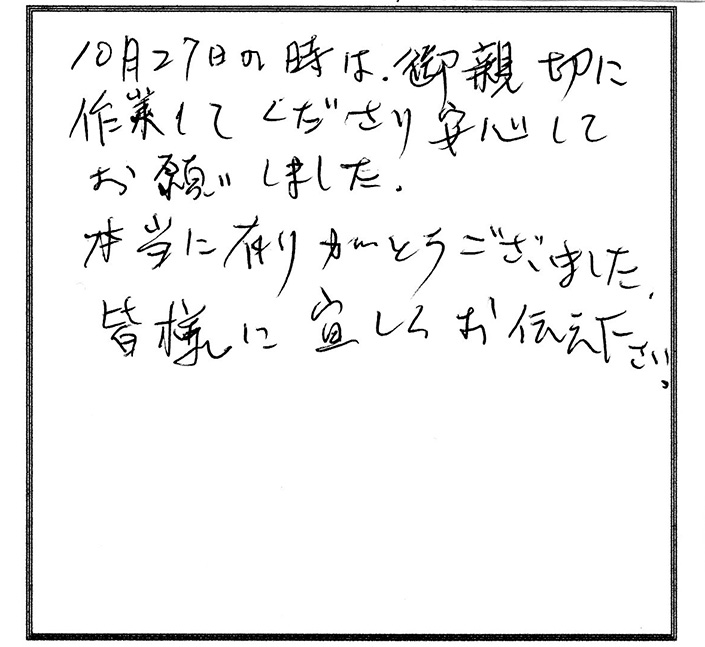 10月27日の時は、御親切に
作業してくださり安心して
お願いしました。
本当に有りがとうございました。
皆様に宜しくお伝え下さい。